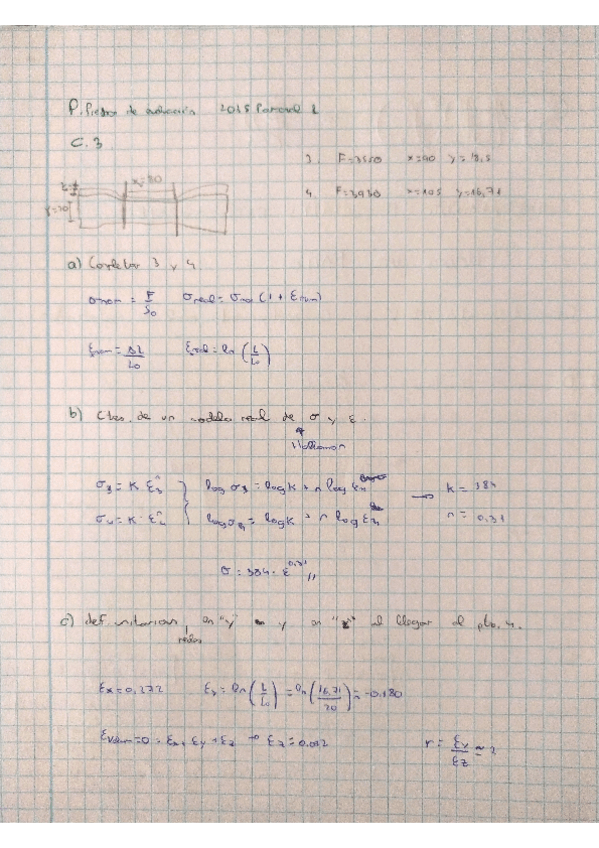 P. Piedra de evaluación 2015 Parcial 1
C.3
3. F=3550 x=90 y=18,5
x=80
4. F=3930 x=105 y=16,71
y=20
a) Completar 3 y 4
σnom = F/S₀ σreal = σno (1 + εnom)
εnom = ΔL/L₀ εreal = ln (L/L₀)
b) Ctes. de un modelo real de σ y ε.
Hollomon
σ₃ = K · ε₃ⁿ } log σ₃ = log K + n log ε → K = 384
σ₄ = K · ε₄ⁿ log σ₄ = log K + n log ε₄ n = 0,31
σ = 384 · ε^0,31 //
c) def unitarias, en "y" y en "z" al llegar al pto. 4.
reales
εx = 0,272 εy = ln (L/L₀) = ln (16,71/20) = -0,180
εvolum = 0 = εx + εy + εz → εz = 0,092 r = εy/εz ≈ 2